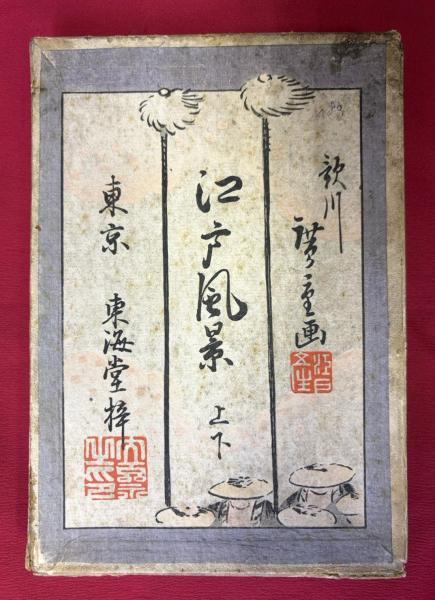 歌川
廣重画
江戸風景
上下
東京
東海堂梓